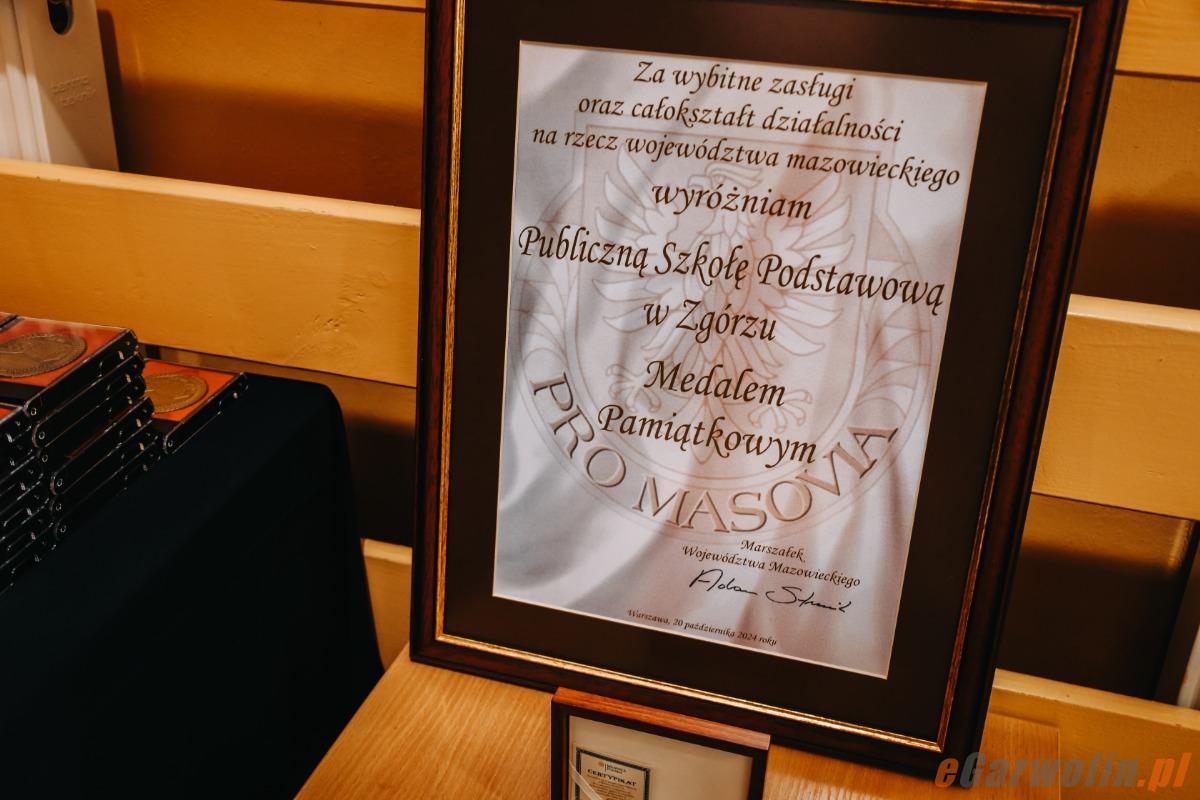 Za wybitne zasługi
oraz całokształt działalności
na rzecz województwa mazowieckiego
wyróżniam
Publiczną Szkołę Podstawową
w Zgórzu
Medalem
Pamiątkowym
PRO MASOVIA
Marszałek
Województwa Mazowieckiego
Adam Struzik
Warszawa, 20 października 2024 roku
CERTYFIKAT
eGarwolin.pl